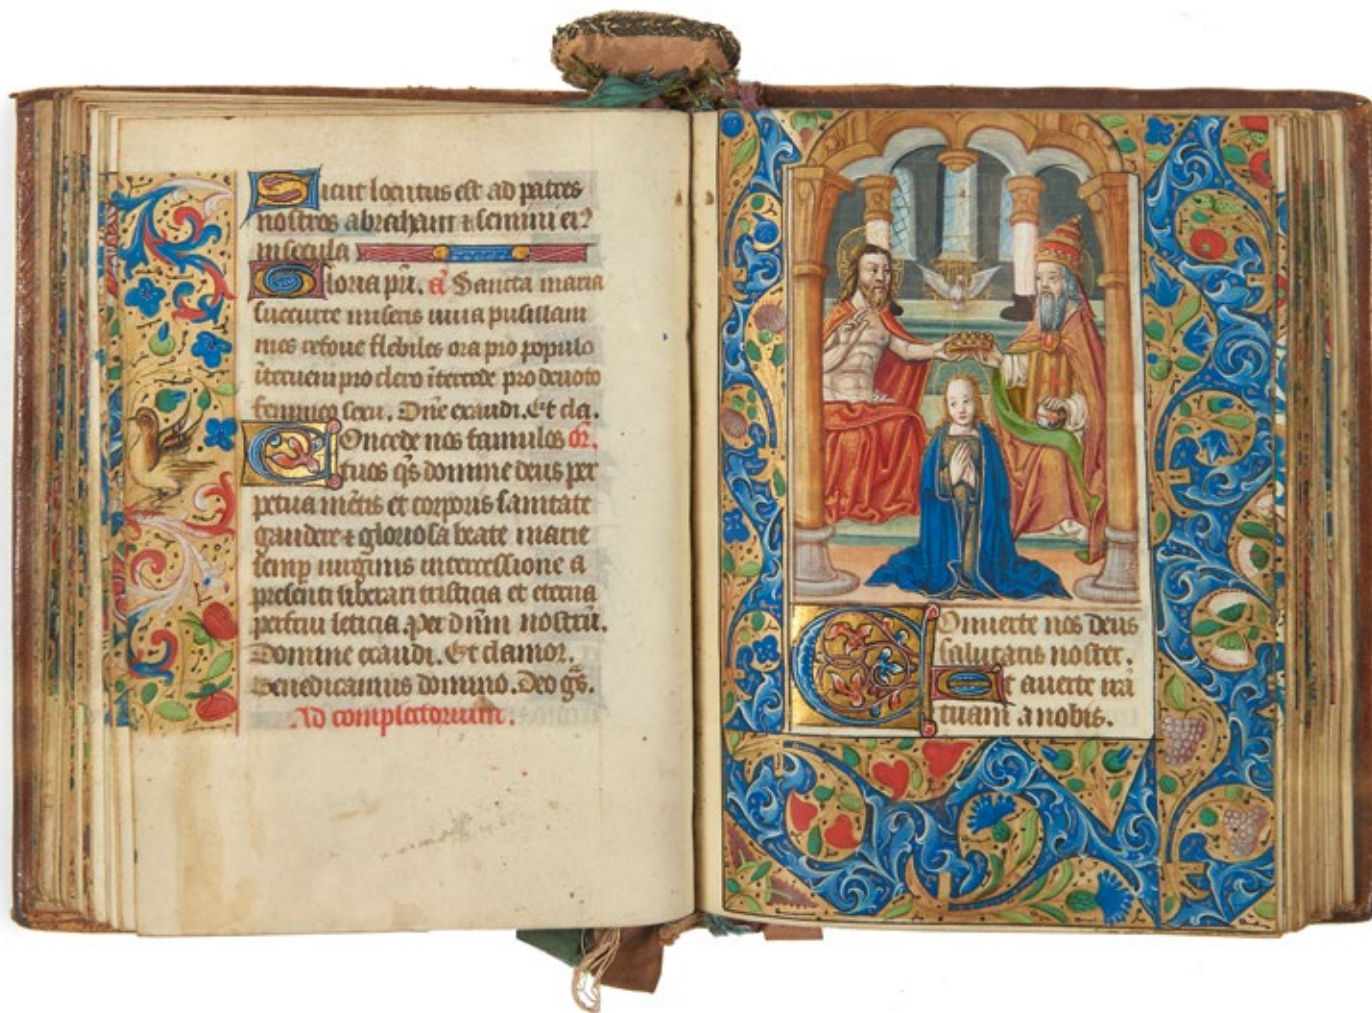 Sicut locutus est ad patres
nostros abraham ⁊ semini eiꝰ
in secula
Gloria pr̄i. a᷑ Sancta maria
succurre miseris iuua pusillani
mes refoue flebiles ora pro populo
īterueni pro clero ītercede pro deuoto
femineo sexu. Dn̄e exaudi. Et cla.
Concede nos famulos or̄.
tuos q̄s domine deus per
petua mētis et corporis sanitate
gaudere ⁊ gloriosa beate marie
semp uirginis intercessione a
presenti liberari tristicia et eterna
perfrui leticia. Per dn̄m nostrū.
Domine exaudi. Et clamor.
Benedicamus domino. Deo gr̄s.
Ad completorium.
Conuerte nos deus
salutaris noster.
Et auerte irā
tuam a nobis.